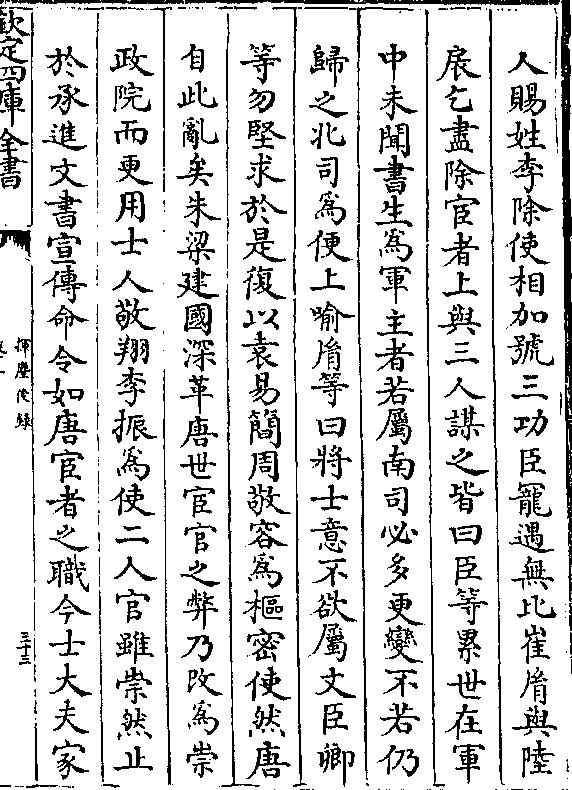 人賜姓李除使相加號三功臣寵遇無比崔㣧與陸
扆乞盡除宦者上與三人謀之皆曰臣等累世在軍
中未聞書生為軍主者若屬南司必多更變不若仍
歸之北司為便上喻㣧等曰將士意不欲屬文臣卿
等勿堅求於是復以袁易簡周敬容為樞密使然唐
自此亂矣朱梁建國深革唐世宦官之弊乃改為崇
政院而更用士人敬翔李振為使二人官雖崇然止
於承進文書宣傳命令如唐宦者之職今士大夫家
欽定四庫全書
揮麈後錄
卷一
三十三